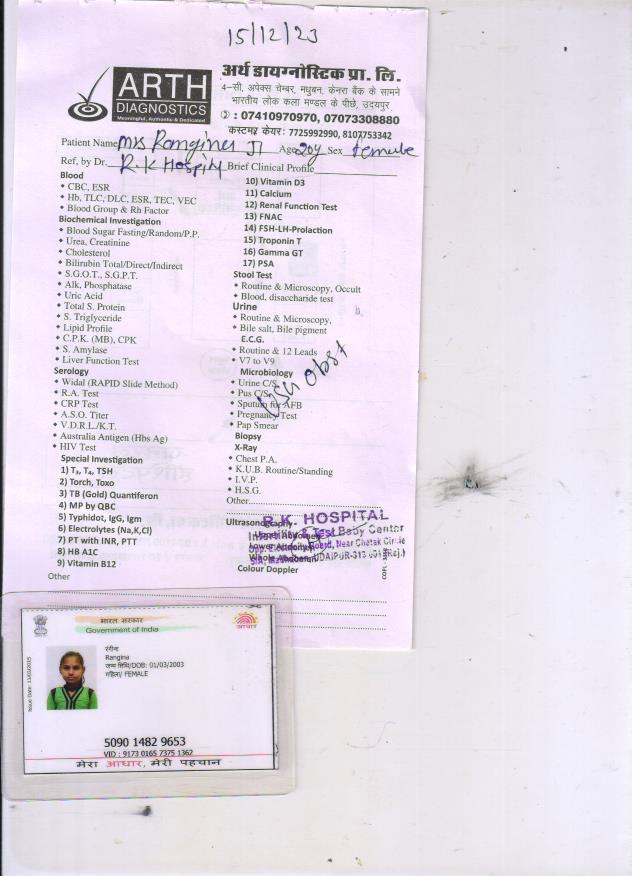 15/12/23
ARTH
DIAGNOSTICS
Meaningful, Authentic & Dedicated
अर्थ डायग्नोस्टिक प्रा. लि.
4-सी, अपेक्स चेम्बर, मधुबन, केनरा बैंक के सामने
भारतीय लोक कला मण्डल के पीछे, उदयपुर
: 07410970970, 07073308880
कस्टमर केयर: 7725992990, 8107753342
Patient Name Mrs Rangina Ji Age 20y Sex Female
Ref, by Dr. R.K Hospital Brief Clinical Profile
Blood
CBC, ESR
Hb, TLC, DLC, ESR, TEC, VEC
Blood Group & Rh Factor
Biochemical Investigation
Blood Sugar Fasting/Random/P.P.
Urea, Creatinine
Cholesterol
Bilirubin Total/Direct/Indirect
S.G.O.T., S.G.P.T.
Alk, Phosphatase
Uric Acid
Total S. Protein
S. Triglyceride
Lipid Profile
C.P.K. (MB), CPK
S. Amylase
Liver Function Test
Serology
Widal (RAPID Slide Method)
R.A. Test
CRP Test
A.S.O. Titer
V.D.R.L./K.T.
Australia Antigen (Hbs Ag)
HIV Test
Special Investigation
1) T₃, T₄, TSH
2) Torch, Toxo
3) TB (Gold) Quantiferon
4) MP by QBC
5) Typhidot, IgG, Igm
6) Electrolytes (Na,K,Cl)
7) PT with INR, PTT
8) HB A1C
9) Vitamin B12
Other
10) Vitamin D3
11) Calcium
12) Renal Function Test
13) FNAC
14) FSH-LH-Prolaction
15) Troponin T
16) Gamma GT
17) PSA
Stool Test
Routine & Microscopy, Occult
Blood, disaccharide test
Urine
Routine & Microscopy,
Bile salt, Bile pigment
E.C.G.
Routine & 12 Leads
V7 to V9
Microbiology
Urine C/S
Pus C/S
Sputum for AFB
Pregnancy Test
Pap Smear
USG Obst
Biopsy
X-Ray
Chest P.A.
K.U.B. Routine/Standing
I.V.P.
H.S.G.
Other
Ultrasonography
R.K. HOSPITAL
Test Baby Center
Near Chetak Circle
UDAIPUR-313 001 (Raj.)
Colour Doppler
भारत सरकार
Government of India
आधार
Issue Date: 11/03/2015
रंगीना
Rangina
जन्म तिथि/DOB: 01/03/2003
महिला/ FEMALE
5090 1482 9653
VID : 9173 0165 7375 1362
मेरा आधार, मेरी पहचान